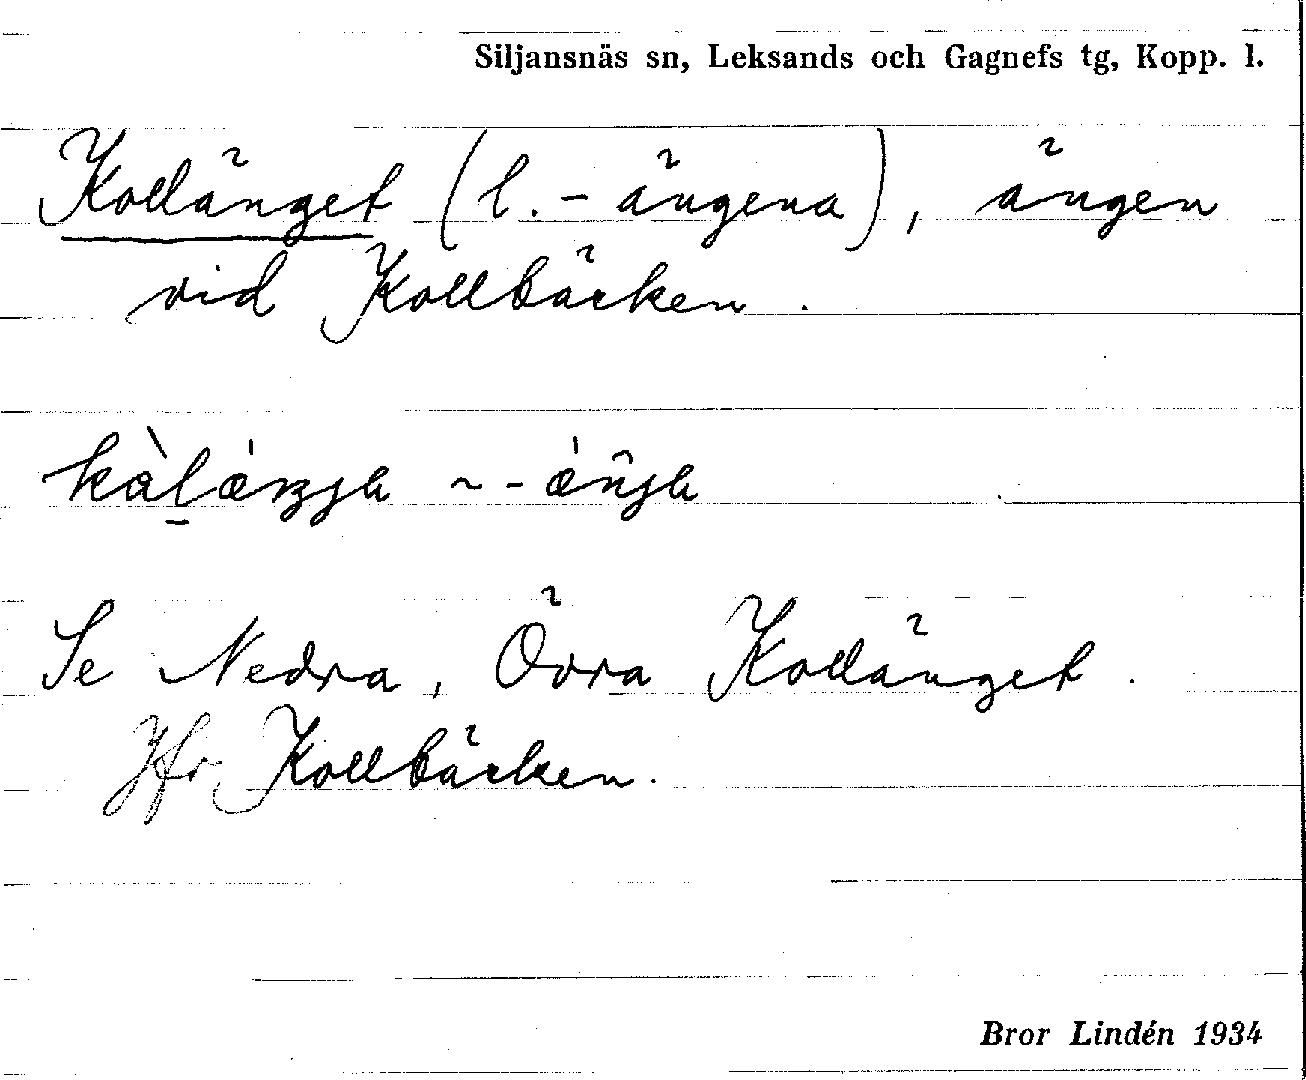 Siljansnäs sn, Leksands och Gagnefs tg, Kopp. l.
Kollänget (l. -ängena), ängen
vid Kollbäcken.
Se Nedra, Övra Kollänget.
Jfr Kollbäcken.
Bror Lindén 1934